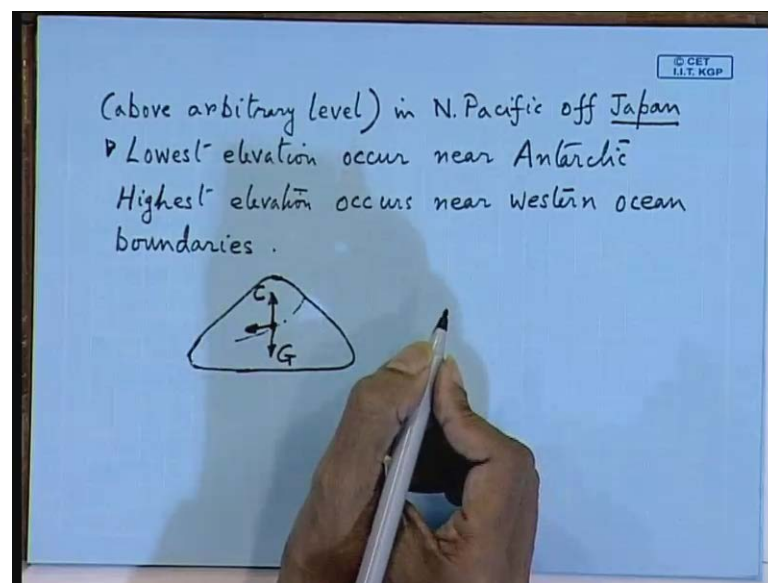 © CET
I.I.T. KGP
(above arbitrary level) in N. Pacific off Japan
Lowest elevation occur near Antarctic
Highest elevation occurs near western ocean
boundaries.
C
G